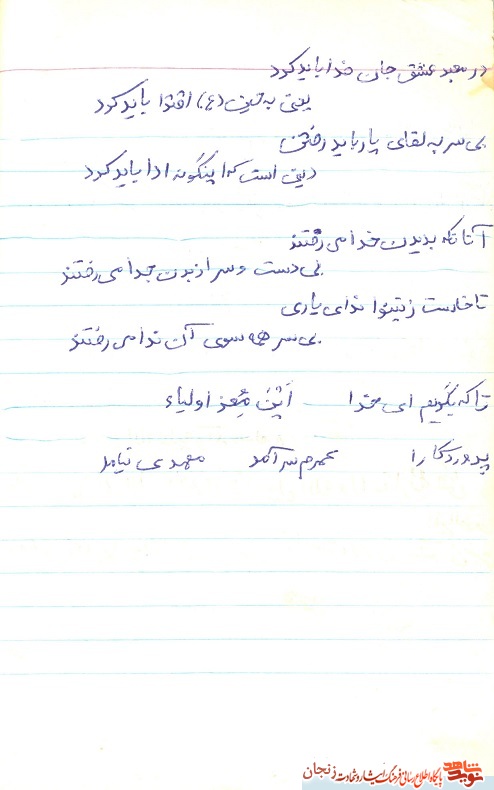 در معبد عشق جان فدا باید کرد
یعنی به حسین (ع) اقتدا باید کرد
بی سر به لقای یار باید رفتن
دینی است که اینگونه ادا باید کرد
آنانکه بدیدن خدا می رفتند
بی دست و سر از بدن جدا می رفتند
تا خاست ز نینوا ندای یاری
بی سر همه سوی آن ندا می رفتند
تا که بگویم ای خدا اَینَ مُعِز اولیاء
پروردگارا عمرم سر آمد مهدی نیامد
نوید شاهد پایگاه اطلاع رسانی فرهنگ ایثار و شهادت زنجان